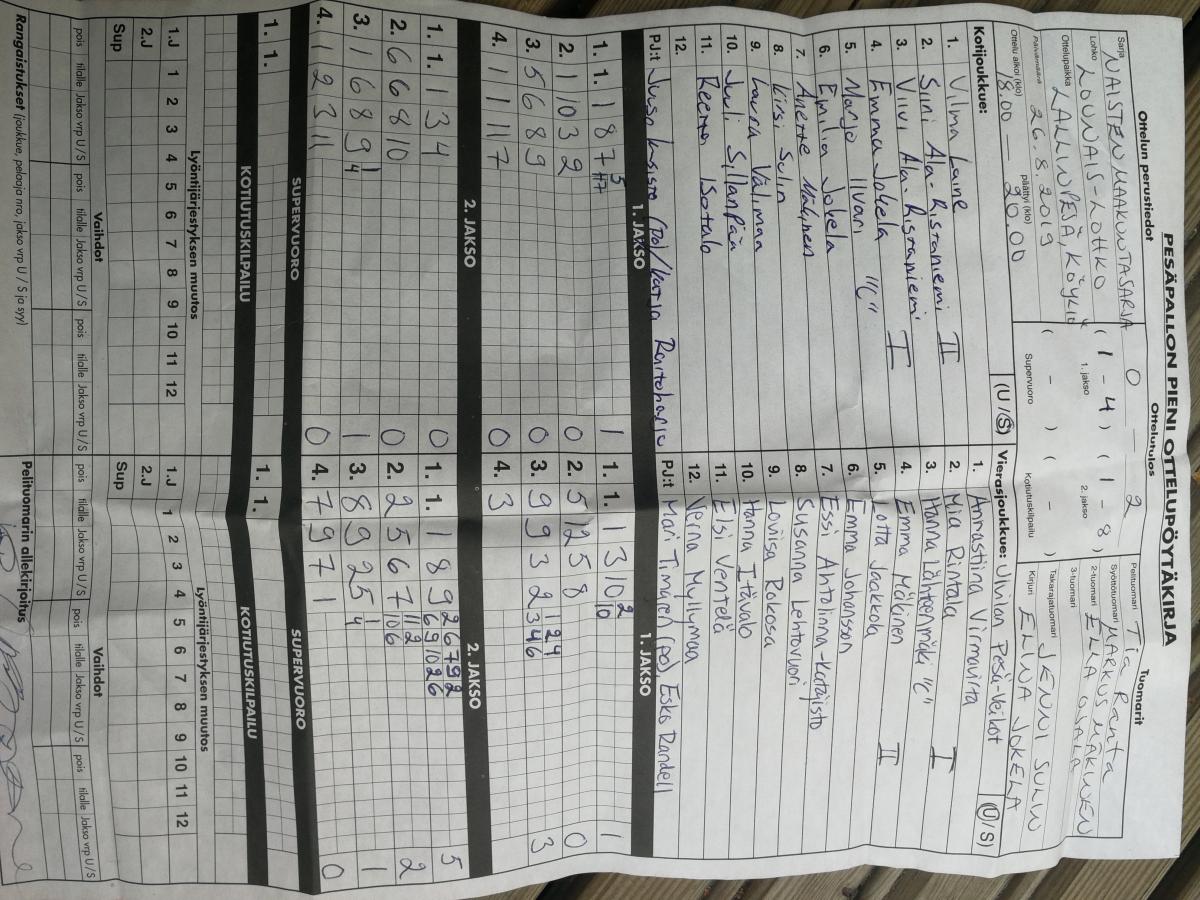 PESÄPALLON PIENI OTTELUPÖYTÄKIRJA
Ottelun perustiedot
Sarja NAISTEN MAAKUNTASARJA
Lohko LOUNAIS-LOHKO
Ottelupaikka LALLINPESÄ, KÖYLIÖ
Päivämäärä 26.8.2019
Ottelu alkoi (klo) 18.00 — päättyi (klo) 20.00
Ottelutulos
0 — 2
( 1 - 4 ) ( 1 - 8 )
1. jakso 2. jakso
( - ) ( - )
Supervuoro Kotiutuskilpailu
Tuomarit
Pelituomari Tia Ranta
Syöttötuomari MARKUS MÄKINEN
2-tuomari ELLA OJALA
3-tuomari
Takarajatuomari JENNI SULIN
Kirjuri ELINA JOKELA
Kotijoukkue: (U/S)
1. Vilma Laine
2. Siri Ala-Ristaniemi II
3. Viivi Ala-Ristaniemi I
4. Emma Jokela "C"
5. Marjo Ilvari
6. Emilia Jokela
7. Anette Mäkinen
8. Kirsi Sulin
9. Laura Välimaa
10. Juli Sillanpää
11. Reetta Isotalo
12.
PJ:t
Vierasjoukkue: Ulvilan Pesä-Veikot (U/S)
1. Annastiina Virmavirta
2. Mia Rintala
3. Hanna Lähteenmäki "C" I
4. Emma Mäkinen
5. Lotta Jaakkola II
6. Emma Johansson
7. Essi Ahtolinna-Katajisto
8. Susanna Lehtovuori
9. Loviisa Rokosa
10. Hanna Itävalo
11. Elsi Ventelä
12. Verna Myllymaa
PJ:t Mari Timaren (po), Esko Randell
1. JAKSO 1. JAKSO
1. 1. 1 8 7 1
2. 1 10 3 2 0
3. 5 6 8 9 0
4. 1 1 11 7 0
1. 1. 1 3 10 2 10 1
2. 5 12 5 8 0
3. 9 9 3 2 3 4 6 1 2 4 3
4. 3
2. JAKSO 2. JAKSO
1. 1. 1 3 4 0
2. 6 6 8 10 0
3. 1 6 8 9 1 4 1
4. 1 2 3 11 0
1. 1. 1 8 9 2 6 7 9 2 6 9 10 2 6 5
2. 2 5 6 7 10 6 1 12 2
3. 8 9 2 5 1 4 1
4. 7 9 7 1 0
SUPERVUORO SUPERVUORO
1. 1. 1. 1.
KOTIUTUSKILPAILU KOTIUTUSKILPAILU
Lyöntijärjestyksen muutos Lyöntijärjestyksen muutos
1 2 3 4 5 6 7 8 9 10 11 12 1 2 3 4 5 6 7 8 9 10 11 12
1.J 1.J
2.J 2.J
Sup Sup
Vaihdot Vaihdot
pois tilalle Jakso vrp U/S pois tilalle Jakso vrp U/S pois tilalle Jakso vrp U/S pois tilalle Jakso vrp U/S pois tilalle Jakso vrp U/S pois tilalle Jakso vrp U/S
Rangaistukset (joukkue, pelaaja nro, jakso vrp U / S ja syy) Pelituomarin allekirjoitus